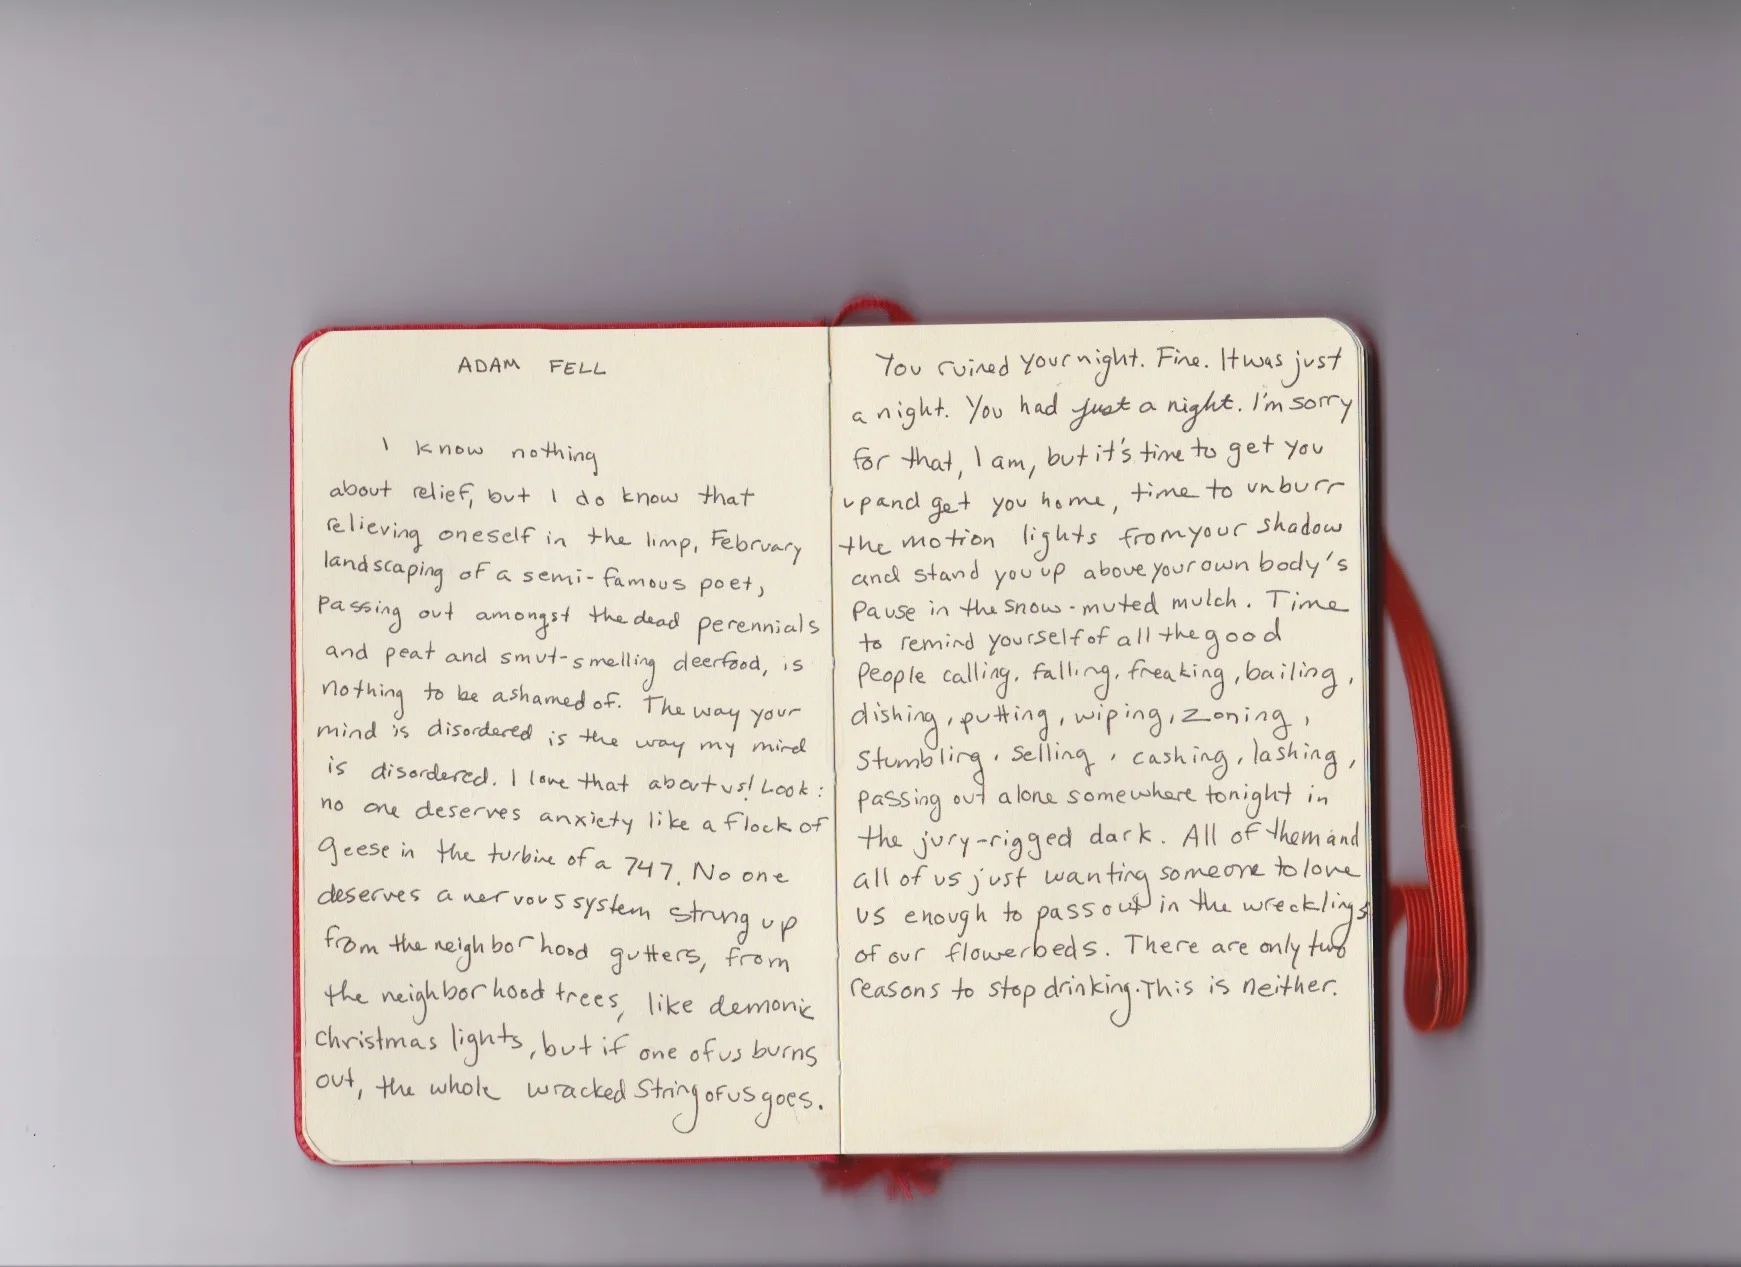 ADAM FELL
I know nothing
about relief, but I do know that
relieving oneself in the limp, February
landscaping of a semi-famous poet,
passing out amongst the dead perennials
and peat and smut-smelling deerfood, is
nothing to be ashamed of. The way your
mind is disordered is the way my mind
is disordered. I love that about us! Look:
no one deserves anxiety like a flock of
geese in the turbine of a 747. No one
deserves a nervous system strung up
from the neighborhood gutters, from
the neighborhood trees, like demonic
christmas lights, but if one of us burns
out, the whole wracked string of us goes.
You ruined your night. Fine. It was just
a night. You had just a night. I'm sorry
for that, I am, but it's time to get you
up and get you home, time to unburr
the motion lights from your shadow
and stand you up above your own body's
pause in the snow-muted mulch. Time
to remind yourself of all the good
people calling, falling, freaking, bailing,
dishing, putting, wiping, zoning,
stumbling, selling, cashing, lashing,
passing out alone somewhere tonight in
the jury-rigged dark. All of them and
all of us just wanting someone to love
us enough to pass out in the wrecklings
of our flowerbeds. There are only two
reasons to stop drinking. This is neither.